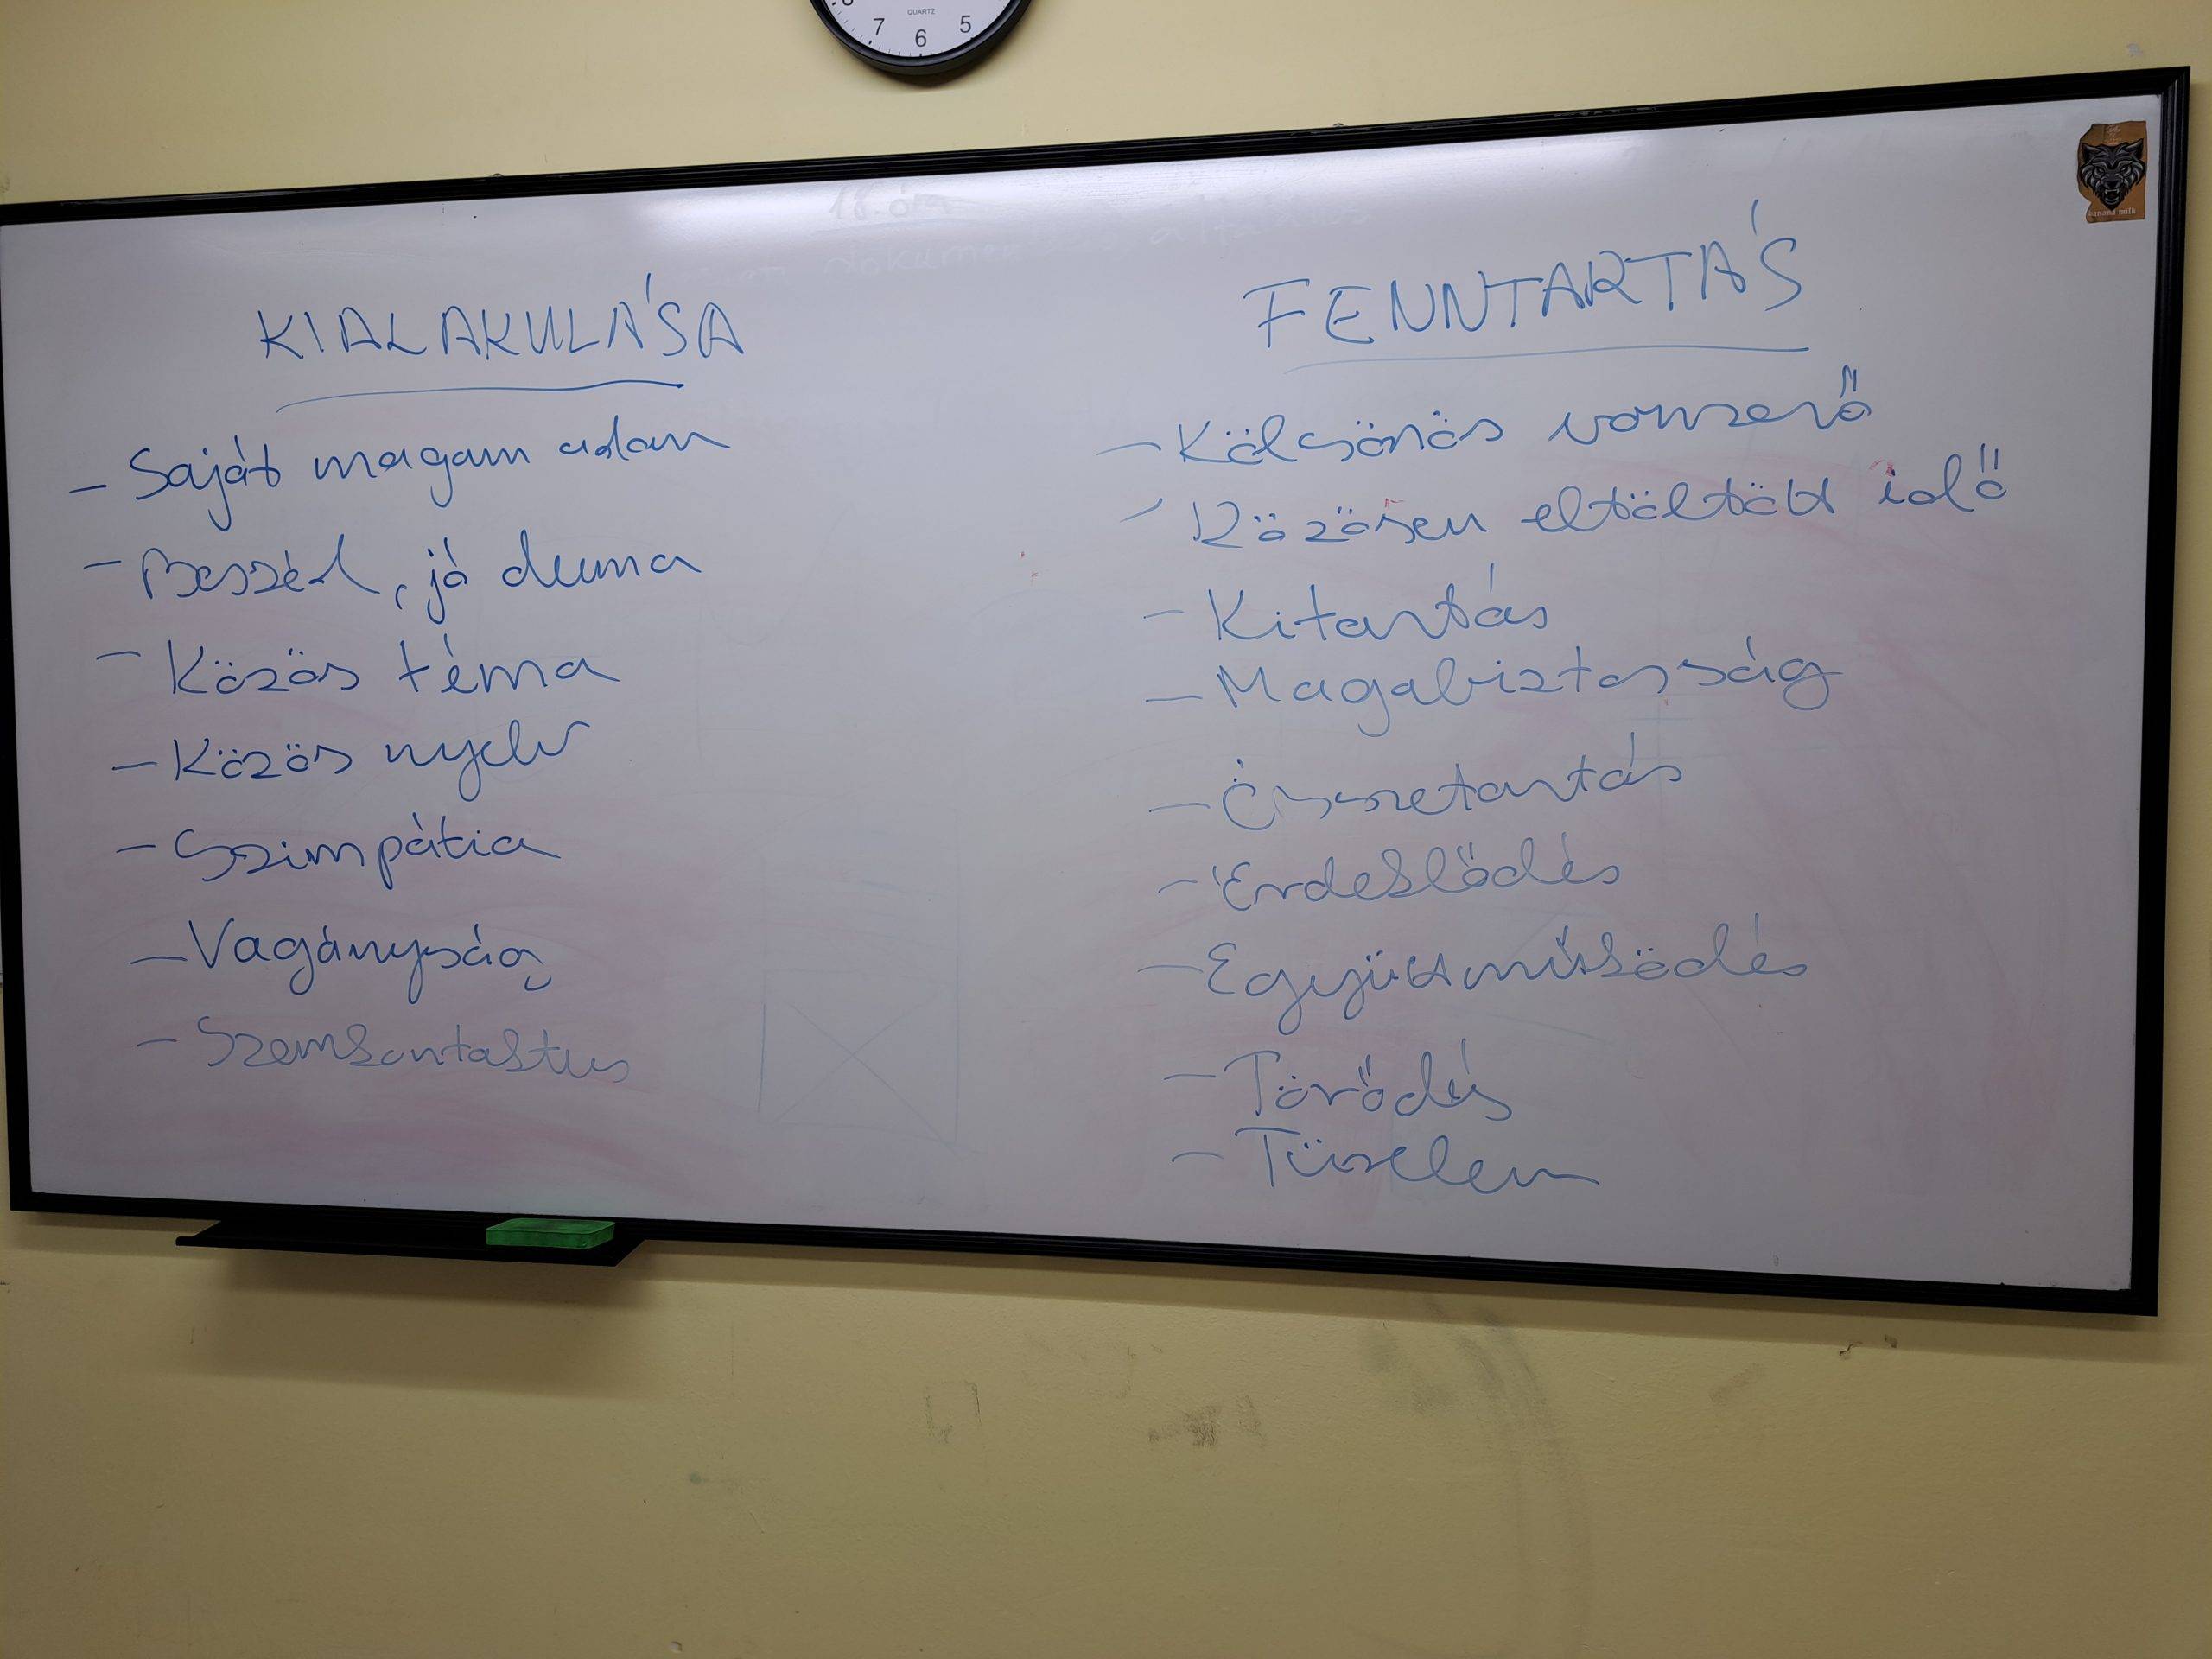 7 6 5
QUARTZ
18. óra
KIALAKULÁSA
- Saját magam adom
- Beszéd, jó duma
- Közös téma
- Közös nyelv
- Szimpátia
- Vagányság
- Szemkontaktus
FENNTARTÁS
- Kölcsönös vonzerő
- Közösen eltöltött idő
- Kitartás
- Magabiztosság
- Összetartás
- Érdeklődés
- Együttműködés
- Törődés
- Türelem